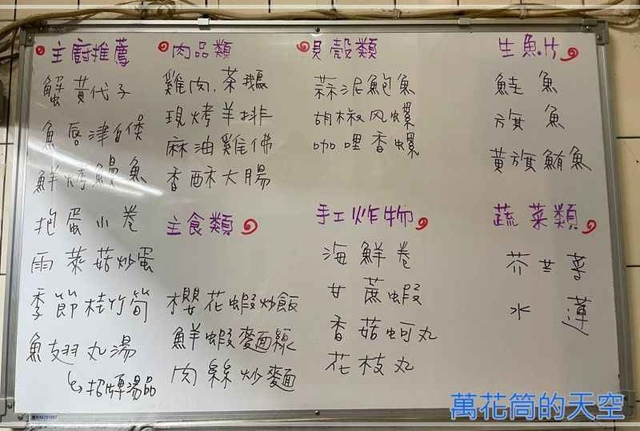 主廚推薦
蟹黃代子
魚唇津白侯
鮮烤鰻魚
抱蛋小卷
雨萊菇炒蛋
季節桂竹筍
魚翅丸湯
招牌湯品
肉品類
雞肉.茶鵝
現烤羊排
麻油雞佛
香酥大腸
主食類
櫻花蝦炒飯
鮮蝦麵線
肉絲炒麵
貝殼類
蒜泥鮑魚
胡椒风螺
咖哩香螺
手工炸物
海鮮卷
甘蔗蝦
香菇蚵丸
花枝丸
生魚片
鮭魚
旗魚
黃旗鮪魚
蔬菜類
芥兰菩
水蓮
萬花筒的天空